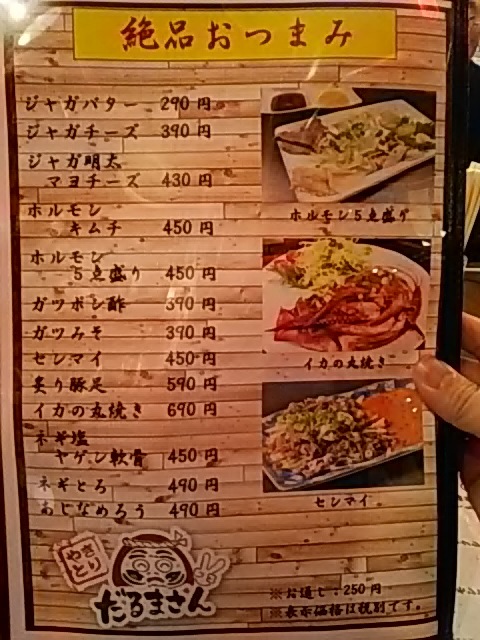 絶品おつまみ
ジャガバター 290円
ジャガチーズ 390円
ジャガ明太
マヨチーズ 430円
ホルモン
キムチ 450円
ホルモン
5点盛り 450円
ガツポン酢 390円
ガツみそ 390円
センマイ 450円
炙り豚足 590円
イカの丸焼き 690円
ネギ塩
ヤゲン軟骨 450円
ネギとろ 490円
あじなめろう 490円
ホルモン5点盛り
イカの丸焼き
センマイ
やきとり
だるまさん
※お通し:250円
※表示価格は税別です。